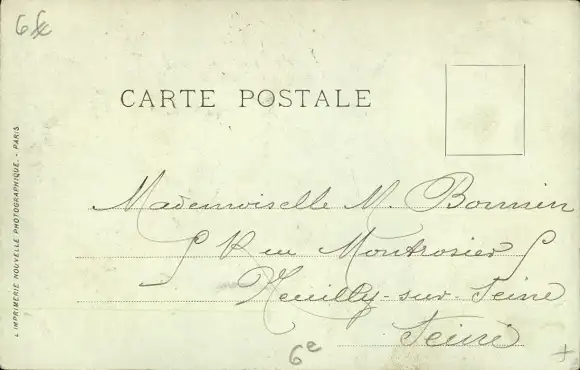 6
CARTE POSTALE
L'IMPRIMERIE NOUVELLE PHOTOGRAPHIQUE. - PARIS
Mademoiselle M. Bonnin
5 Rue Montrosier 5
Neuilly-sur-Seine
Seine
6e
+